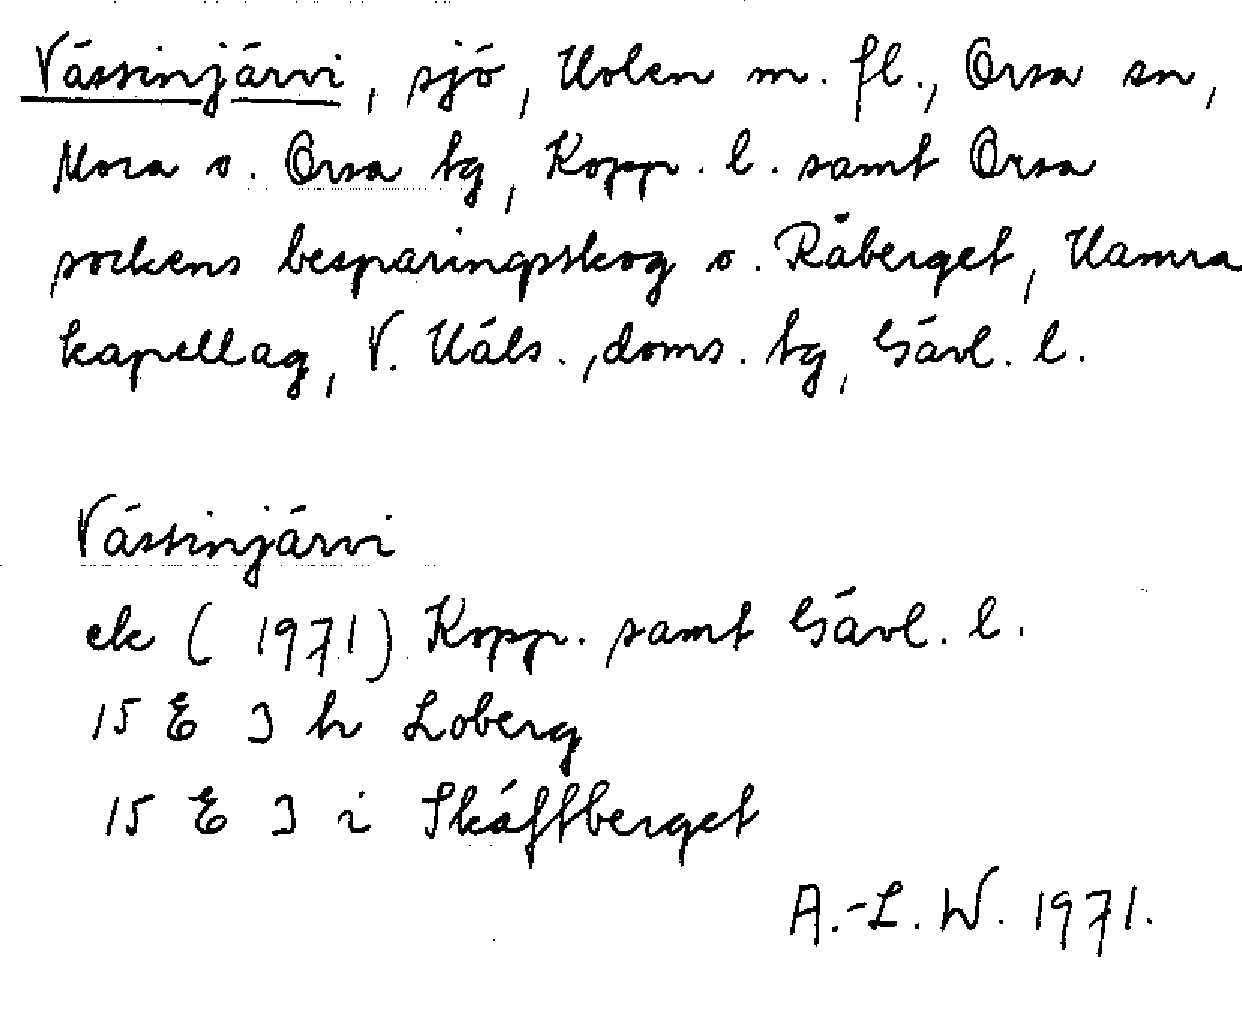 Västinjärvi, sjö, Holen m. fl., Orsa sn,
Mora o. Orsa tg, Kopp. l. samt Orsa
sockens besparingsskog o. Råberget, Hamra
kapellag, V. Häls. doms. tg, Gävl. l.
Västinjärvi
ek (1971) Kopp. samt Gävl. l.
15 E 3 h Loberg
15 E 3 i Skäftberget
A.-L. W. 1971.